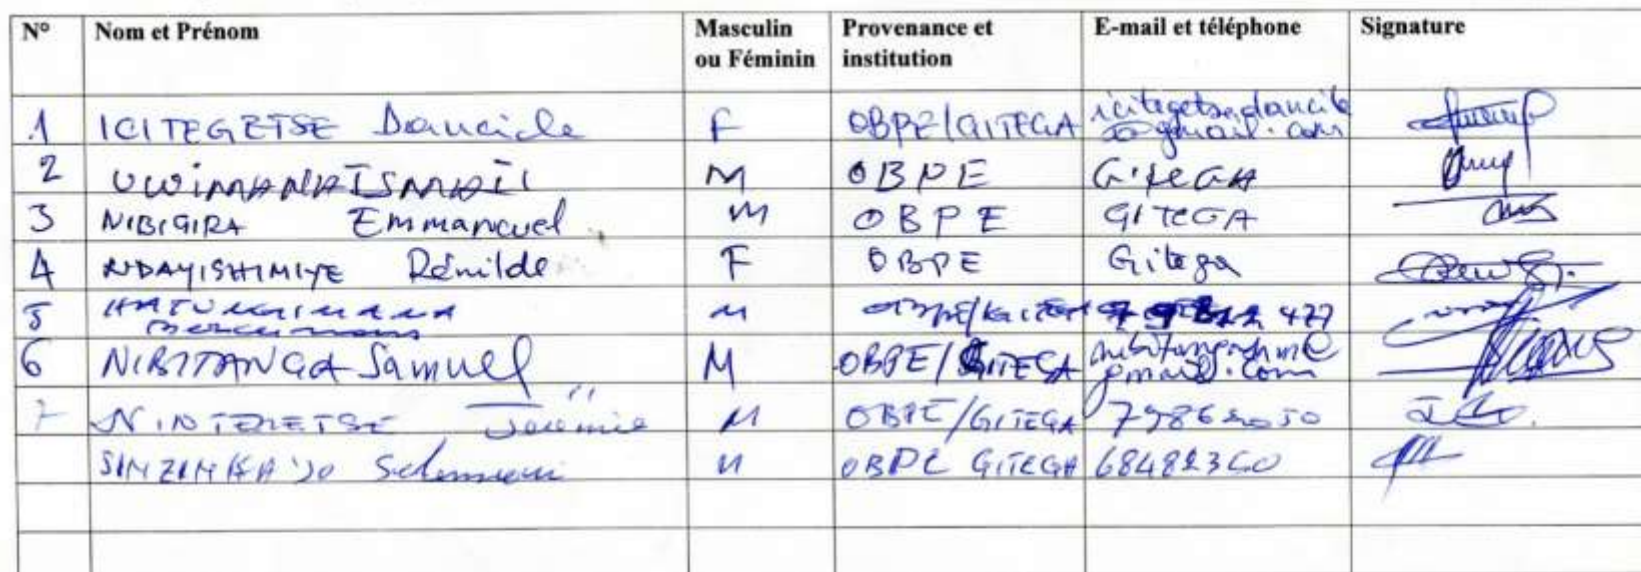 N° Nom et Prénom Masculin ou Féminin Provenance et institution E-mail et téléphone Signature
1 ICITEGETSE Dancile F OBPE/GITEGA icitegetsedancile@gmail.com
2 UWIMANA ISMAIL M OBPE GITEGA
3 NIBIGIRA Emmanuel M OBPE GITEGA
4 NDAYISHIMIYE Rénilde F OBPE Gitega
5 HATUNGIMANA M OBPE/GITEGA 477
6 NIBITANGA Samuel M OBPE/GITEGA gmail.com
7 NINTERETSE Jérémie M OBPE/GITEGA
M OBPE GITEGA